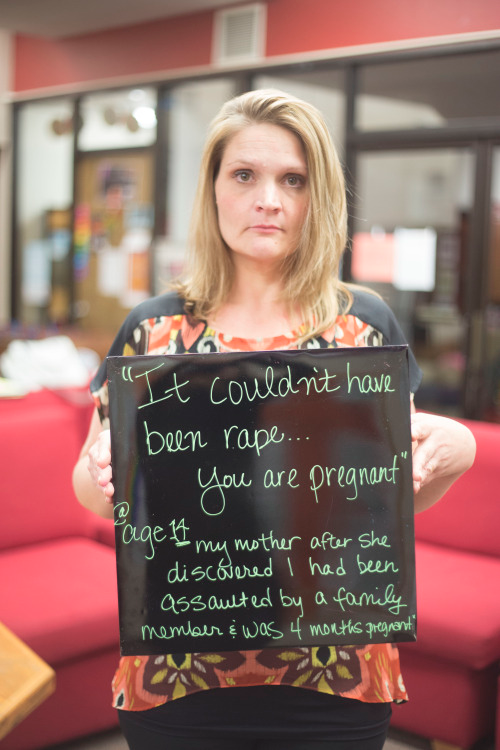 "It couldn't have
been rape...
You are pregnant"
@age 14 my mother after she
discovered I had been
assaulted by a family
member & was 4 months pregnant"